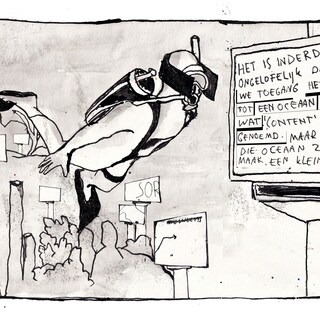 HET IS INDERD
ONGELOFELIJK D
WE TOEGANG HE
TOT EEN OCEAAN
WAT 'CONTENT'
GENOEMD. MAAR
DIE OCEAAN Z
MAAK. EEN KLEIN
SOR